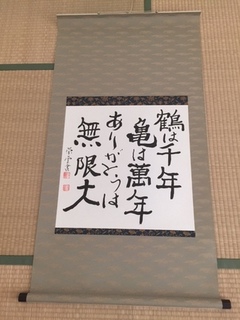 鶴は千年
亀は萬年
ありがとうは
無限大